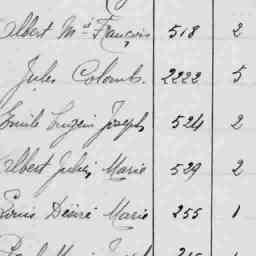 Albert Me François 518 2
Jules Colomb. 2222 5
Emile Eugène Joseph 524 2
Albert Jules Marie 529 2
Louis Désiré Marie 255 1